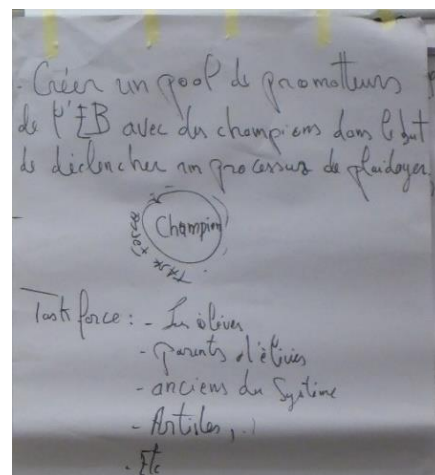 - Créer un pool de promotteurs
de l'EB avec des champions dans le but
de déclencher un processus de plaidoyer
-
Champion
Task force
Task force : - Les élèves
- parents d'élèves
- anciens du Système
- Artistes, ..
- Etc